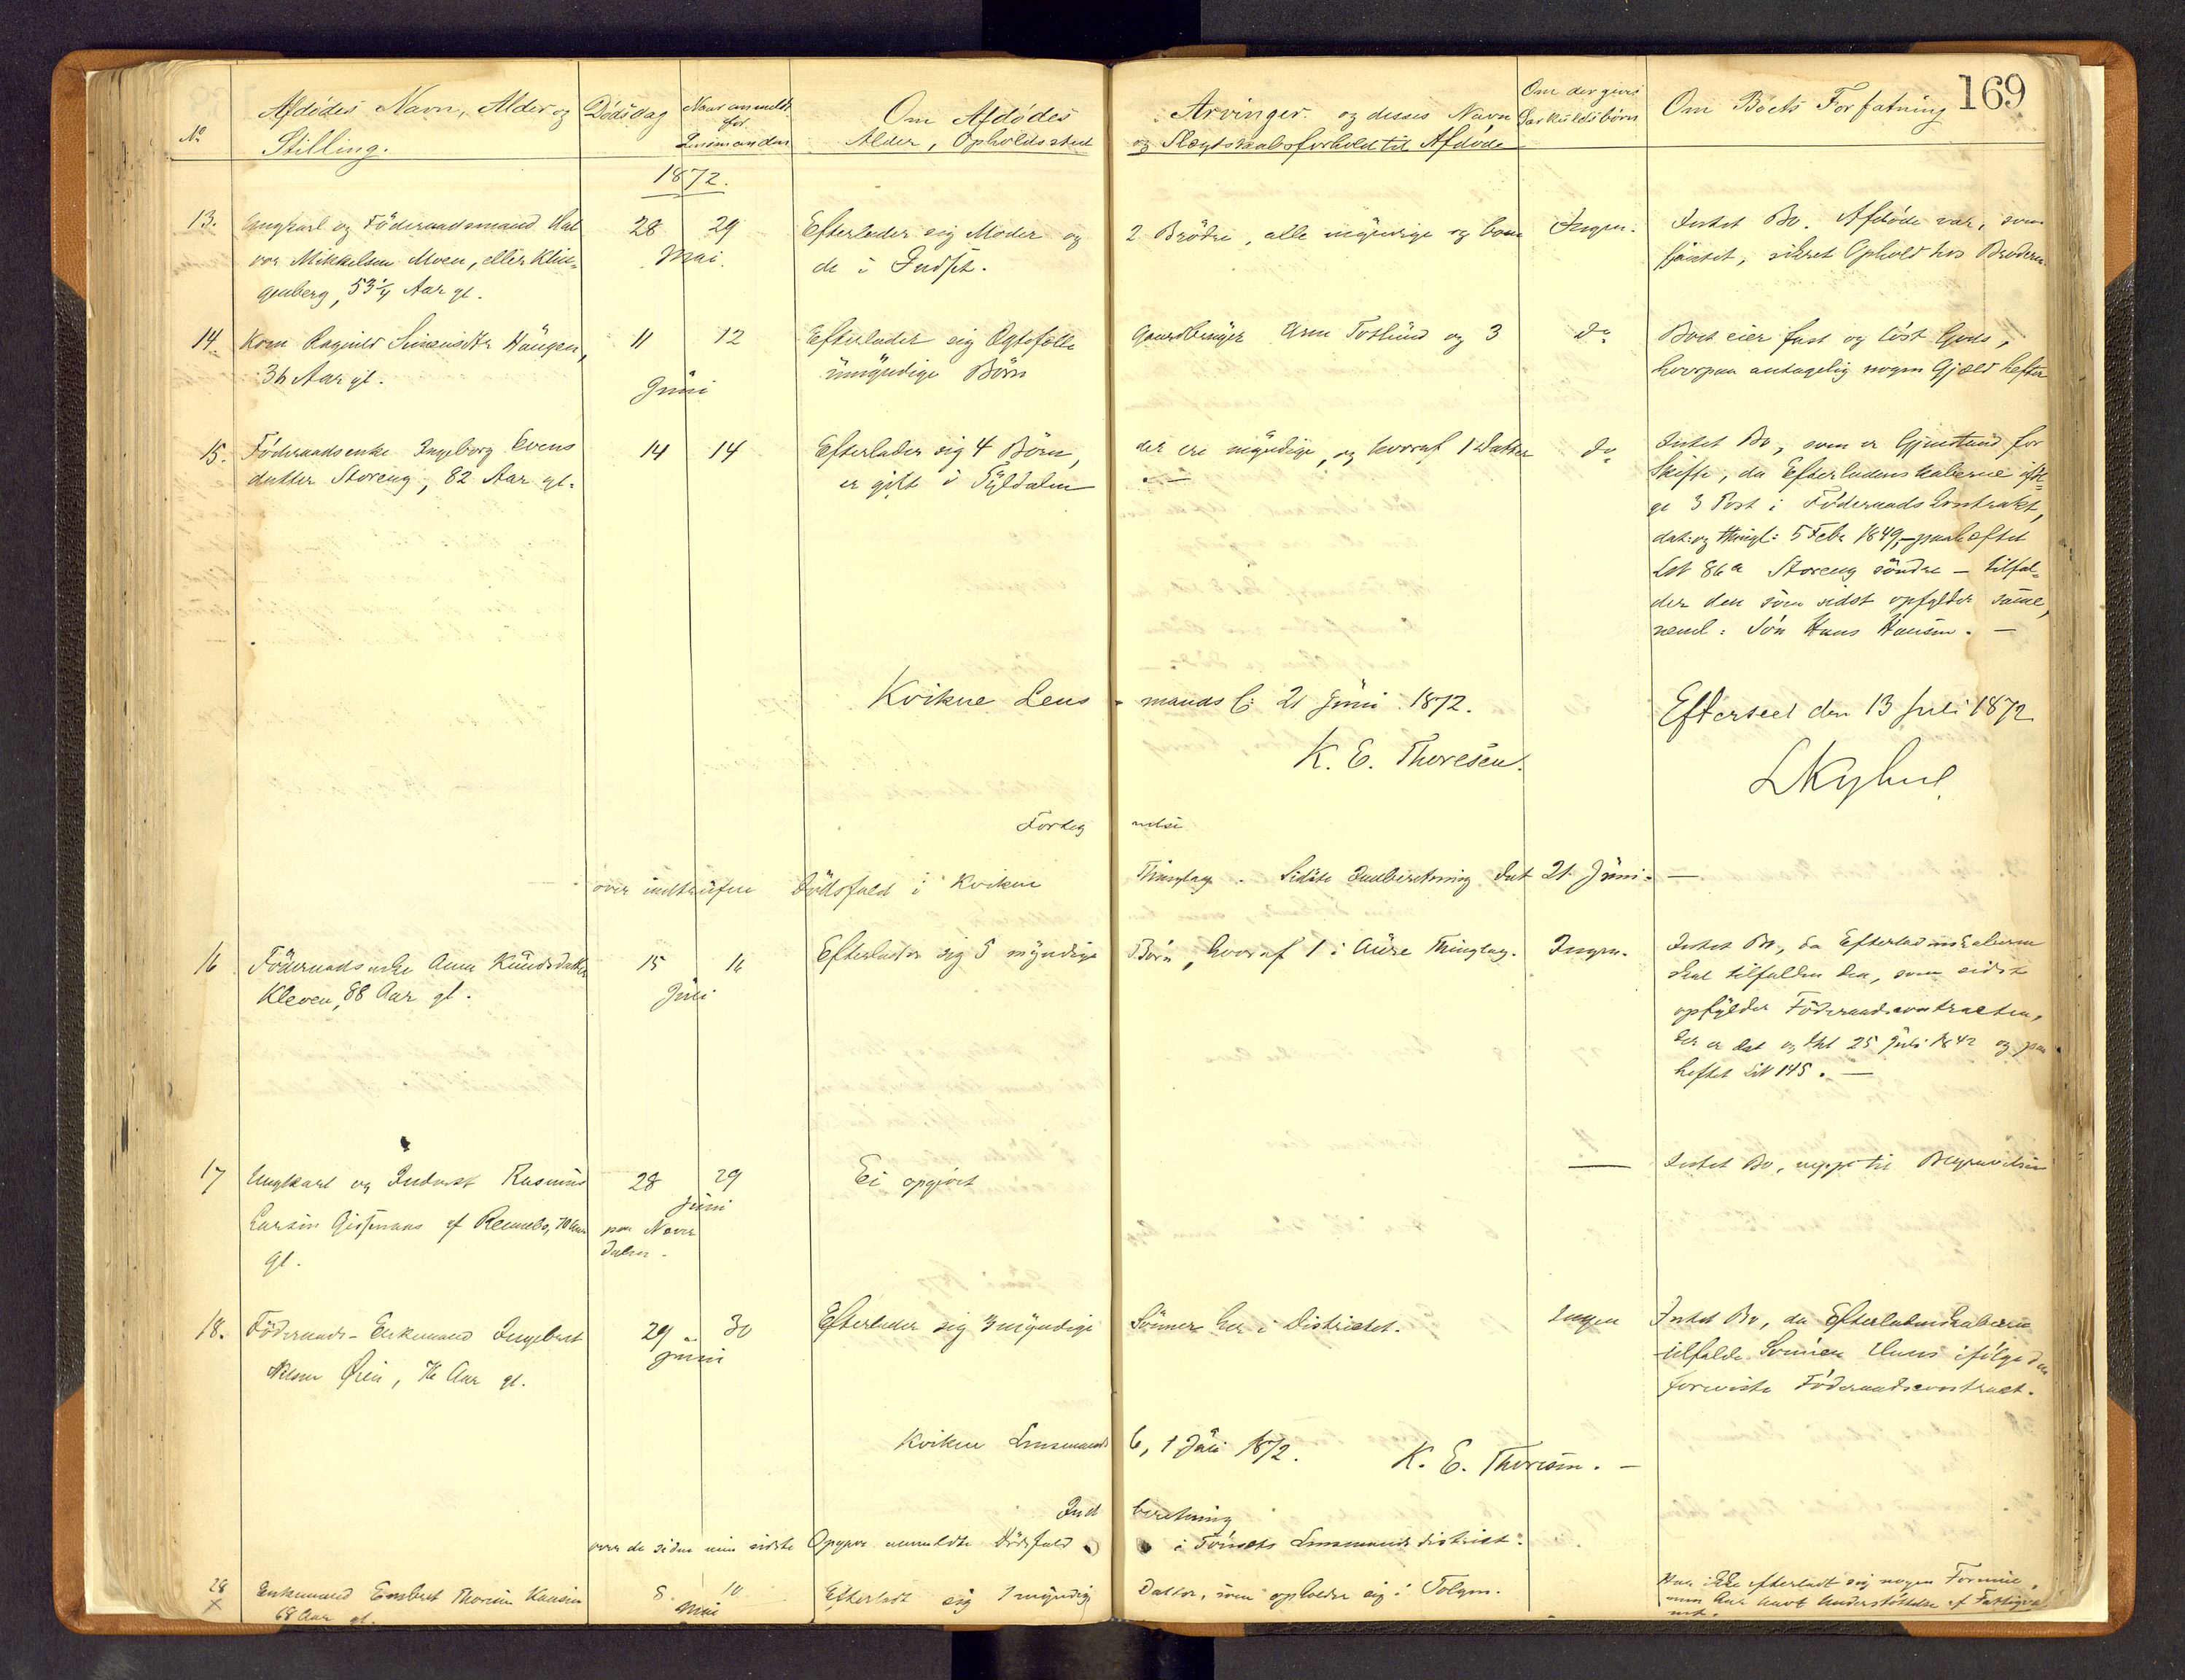 169
No
Afdödes Navn, Alder og
Stilling.
Dödsdag
Naar anmeldt
for
Lensmanden
Om Afdödes
Alder, Opholdssted
Arvinger og desses Navn
og Slægtskabsforhold til Afdöde
Om der gives
Særkuldsbörn
Om Boets Forfatning
1872.
13. Ungkarl og Föderaadsmand Hal
vor Mikkelsen Moen, eller Klin-
genberg, 53 1/4 Aar gl.
28 29
Mai.
Efterlader sig Moder og 2 Brödre, alle myndige og boen
de i Indset.
Ingen.
Intet Bo. Afdöde var, som
sikret Ophold hos Broderen.
14. Kone Ragnild Simensdtr Haugen,
36 Aar gl.
11 12
Juni
Efterlader sig Ægtefælle Gaardbruger Arne Totlund og 3
umyndige Börn
do
Boet eier fast og löst Gods,
hvorpaa antagelig nogen Gjæld hefter
15. Föderaadsenke Ingeborg Evens
datter Storeng, 82 Aar gl.
14 14
Efterlader sig 4 Börn, der ere myndige, og hvoraf 1 Datter
er gift i Tyldalen
do
Intet Bo, som er Gjenstand for
Skifte, da Efterladenskaberne iföl-
ge 3 Post i Föderaads Contrakt,
dat: og thingl: 5 Febr 1849, paaheftet
LN 86a Storeng söndre - tilfal-
der den som sidst opfylder samme,
neml: Sön Hans Hansen. -
Kvikne Lens-mands C: 21 Juni 1872.
K. E. Thoresen.
Efterseet den 13 Juli 1872
Forteg nelse
over indtrufne Dödsfald i Kvikne Thinglag. Sidste Indberetning dat 21 Juni. -
16 Föderaadsenke Anne Knudsdatter
Kleven, 88 Aar gl.
15 16
Juni
Efterlader sig 5 myndige Börn, hvoraf 1 i Aure Thinglag.
Ingen.
Intet Bo, da Efterladenskaberne
skal tilfalde den, som sidst
opfylder Föderaadscontracten,
der er dat og thl 25 Juli 1842 og paa
heftet LN 145. -
17 Ungkarl og Inderst Rasmus
Larsen af Rennebo, 70 Aar
gl.
28 29
Juni
paa Naver
dalen.
Ei opgivet
Intet Bo, neppe til Begravelsen
18. Föderaads-Enkemand Ingebret
Olsen Øien, 76 Aar gl.
29 30
Juni
Efterlader sig 3 myndige Sönner her i Districtet.
Ingen
Intet Bo, da Efterladenskaberne
tilfalde Sönnen Hans ifölge den
foreviste Föderaadscontract.
Kvikne Lensmands C, 1 Juli 1872.
K. E. Thoresen. -
Ind beretning
over de siden min sidste Opgave anmeldte Dödsfald i Tönsets Lensmandsdistrict.
28
x
Enkemand Embret Thoresen Hansen
68 Aar gl.
8 10
Mai
Efterladt sig 1 myndig Datter, som opholder sig i Tolgen.
Har ikke efterladt sig nogen Formue,
men har havt Understöttelse af Fattigvæ
net.